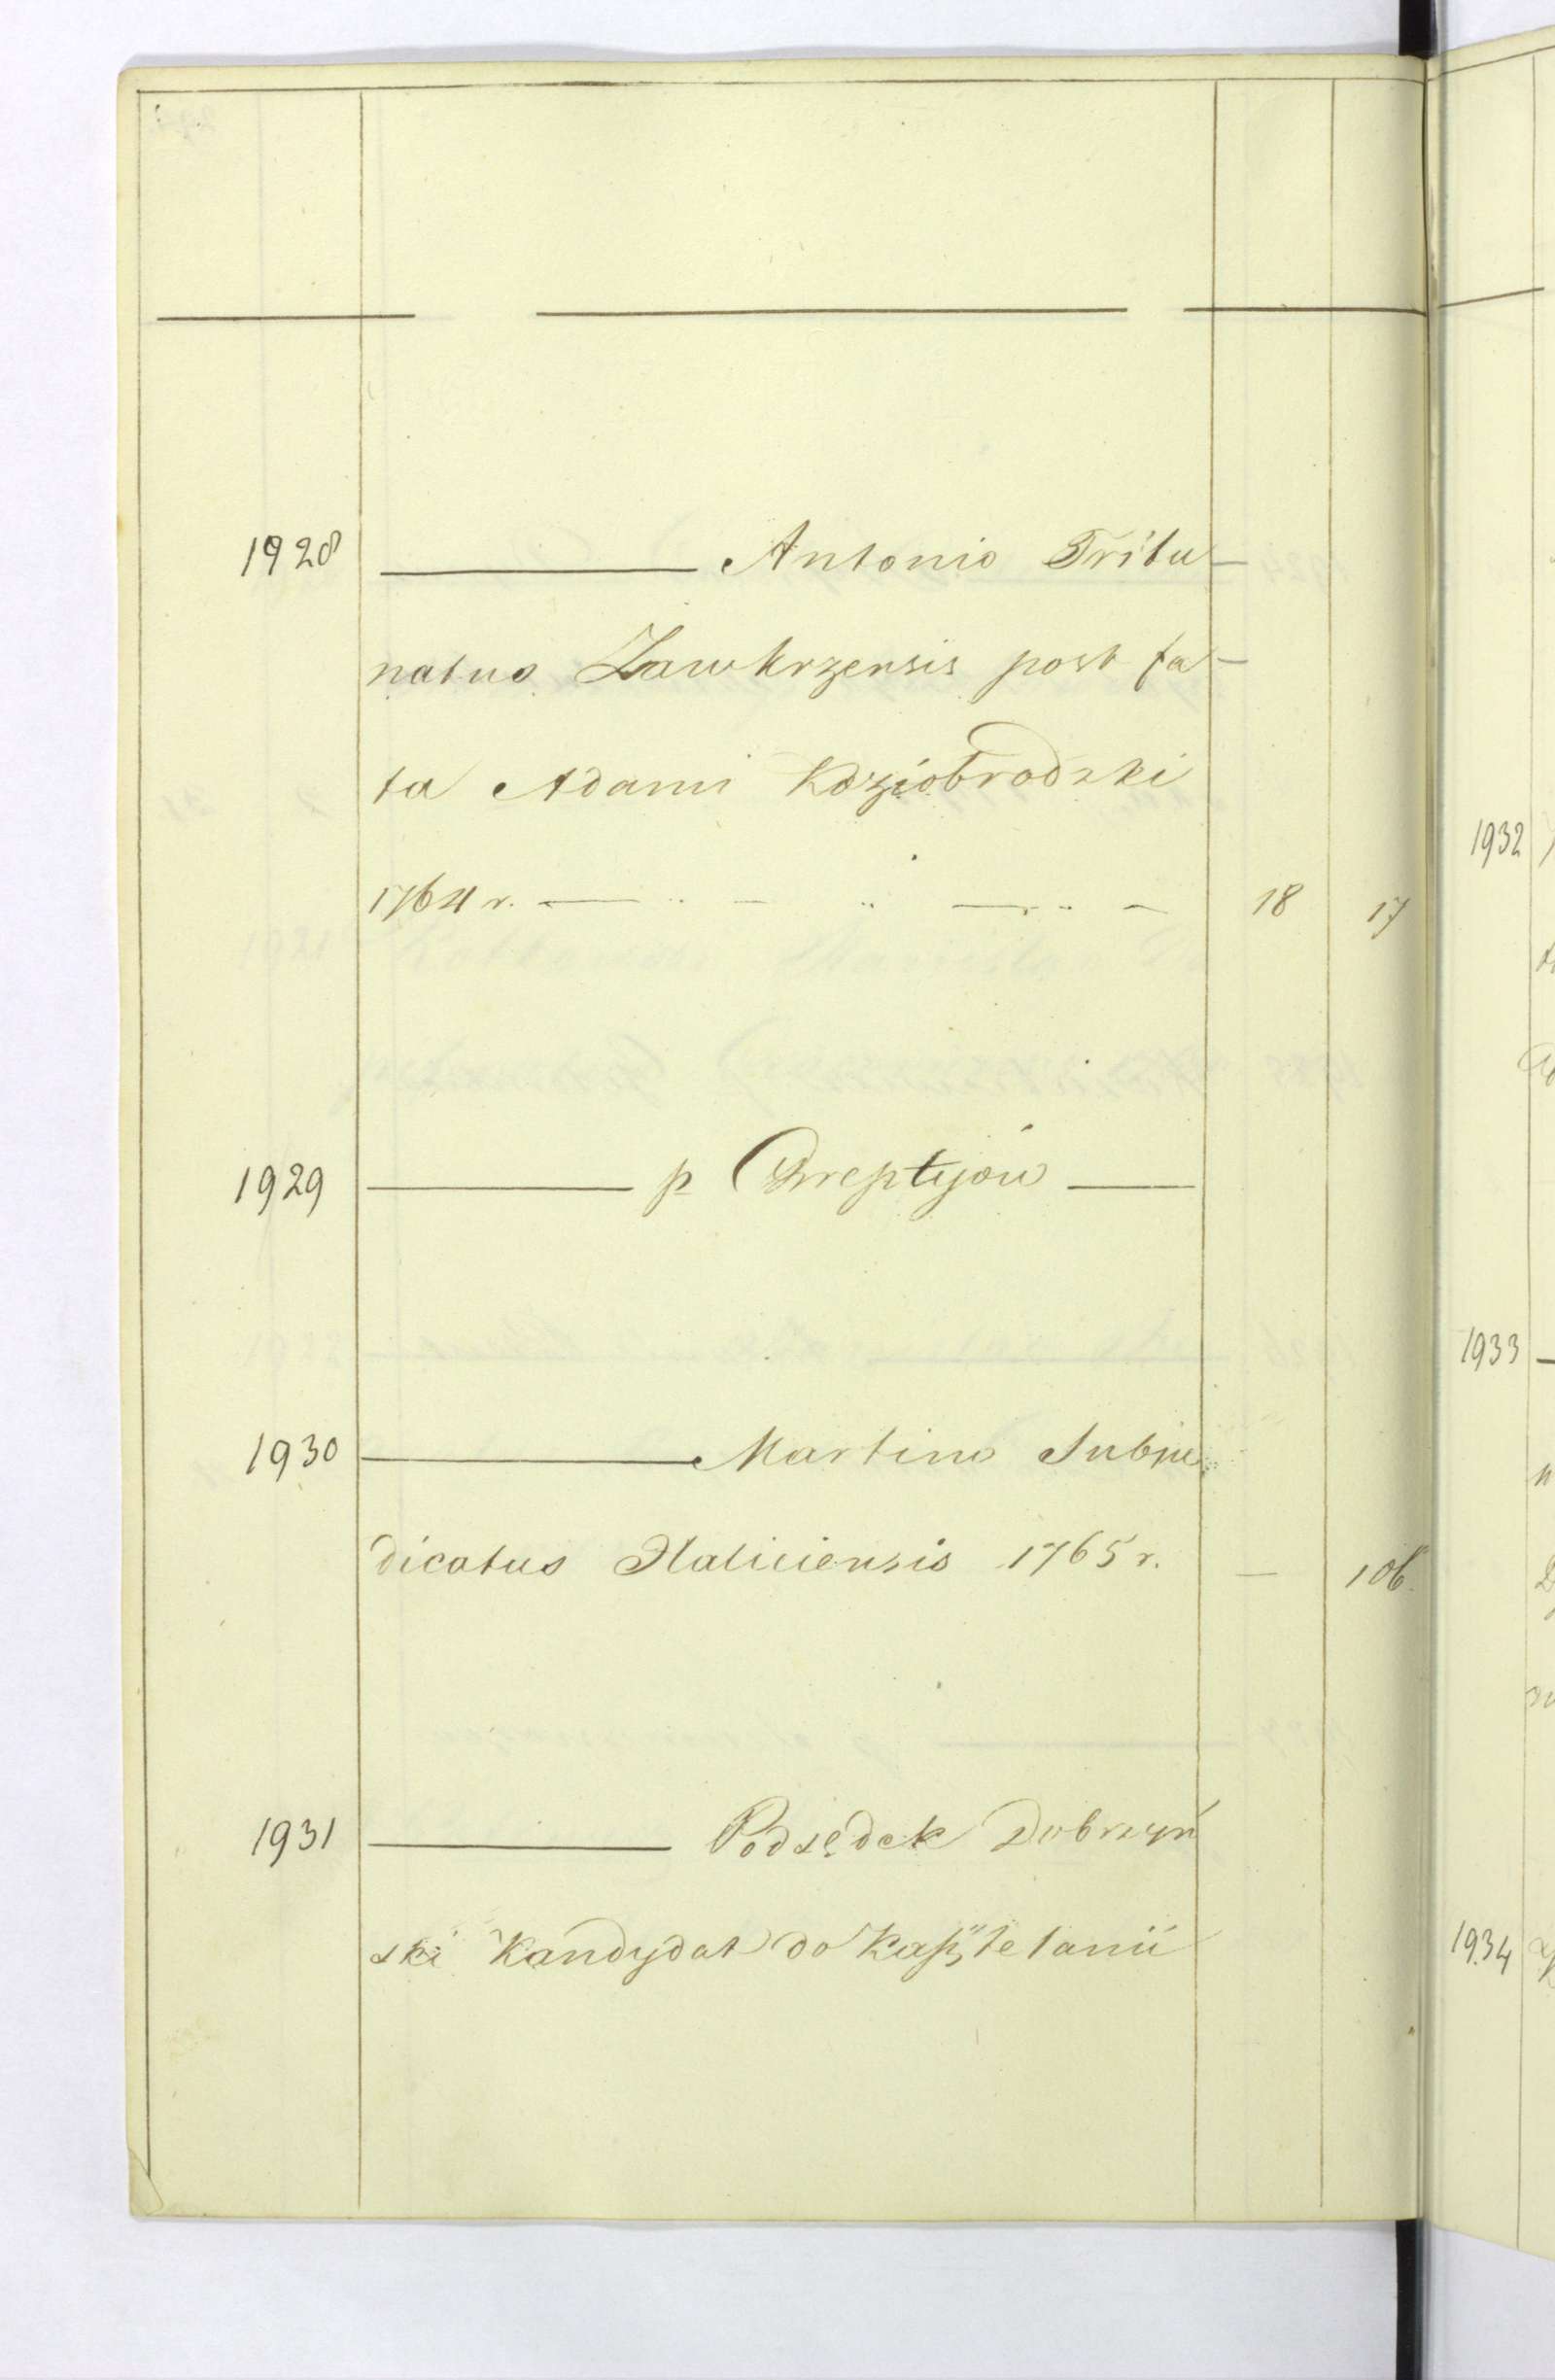 1928 ——— Antonio Tribu-
natus Zawkrzensis post fa-
ta Adami Kdziobrodzki
1764 r. — .. — .. — .. — 18 17
1929 ——— p Drreptyjow —
1930 ——— Martino Subju
dicatus Haliciensis 1765 r. — 106.
1931 ——— Podsędek Dobrzyń
ski Kandydat do Kasztelanii
1932
1933 —
1934